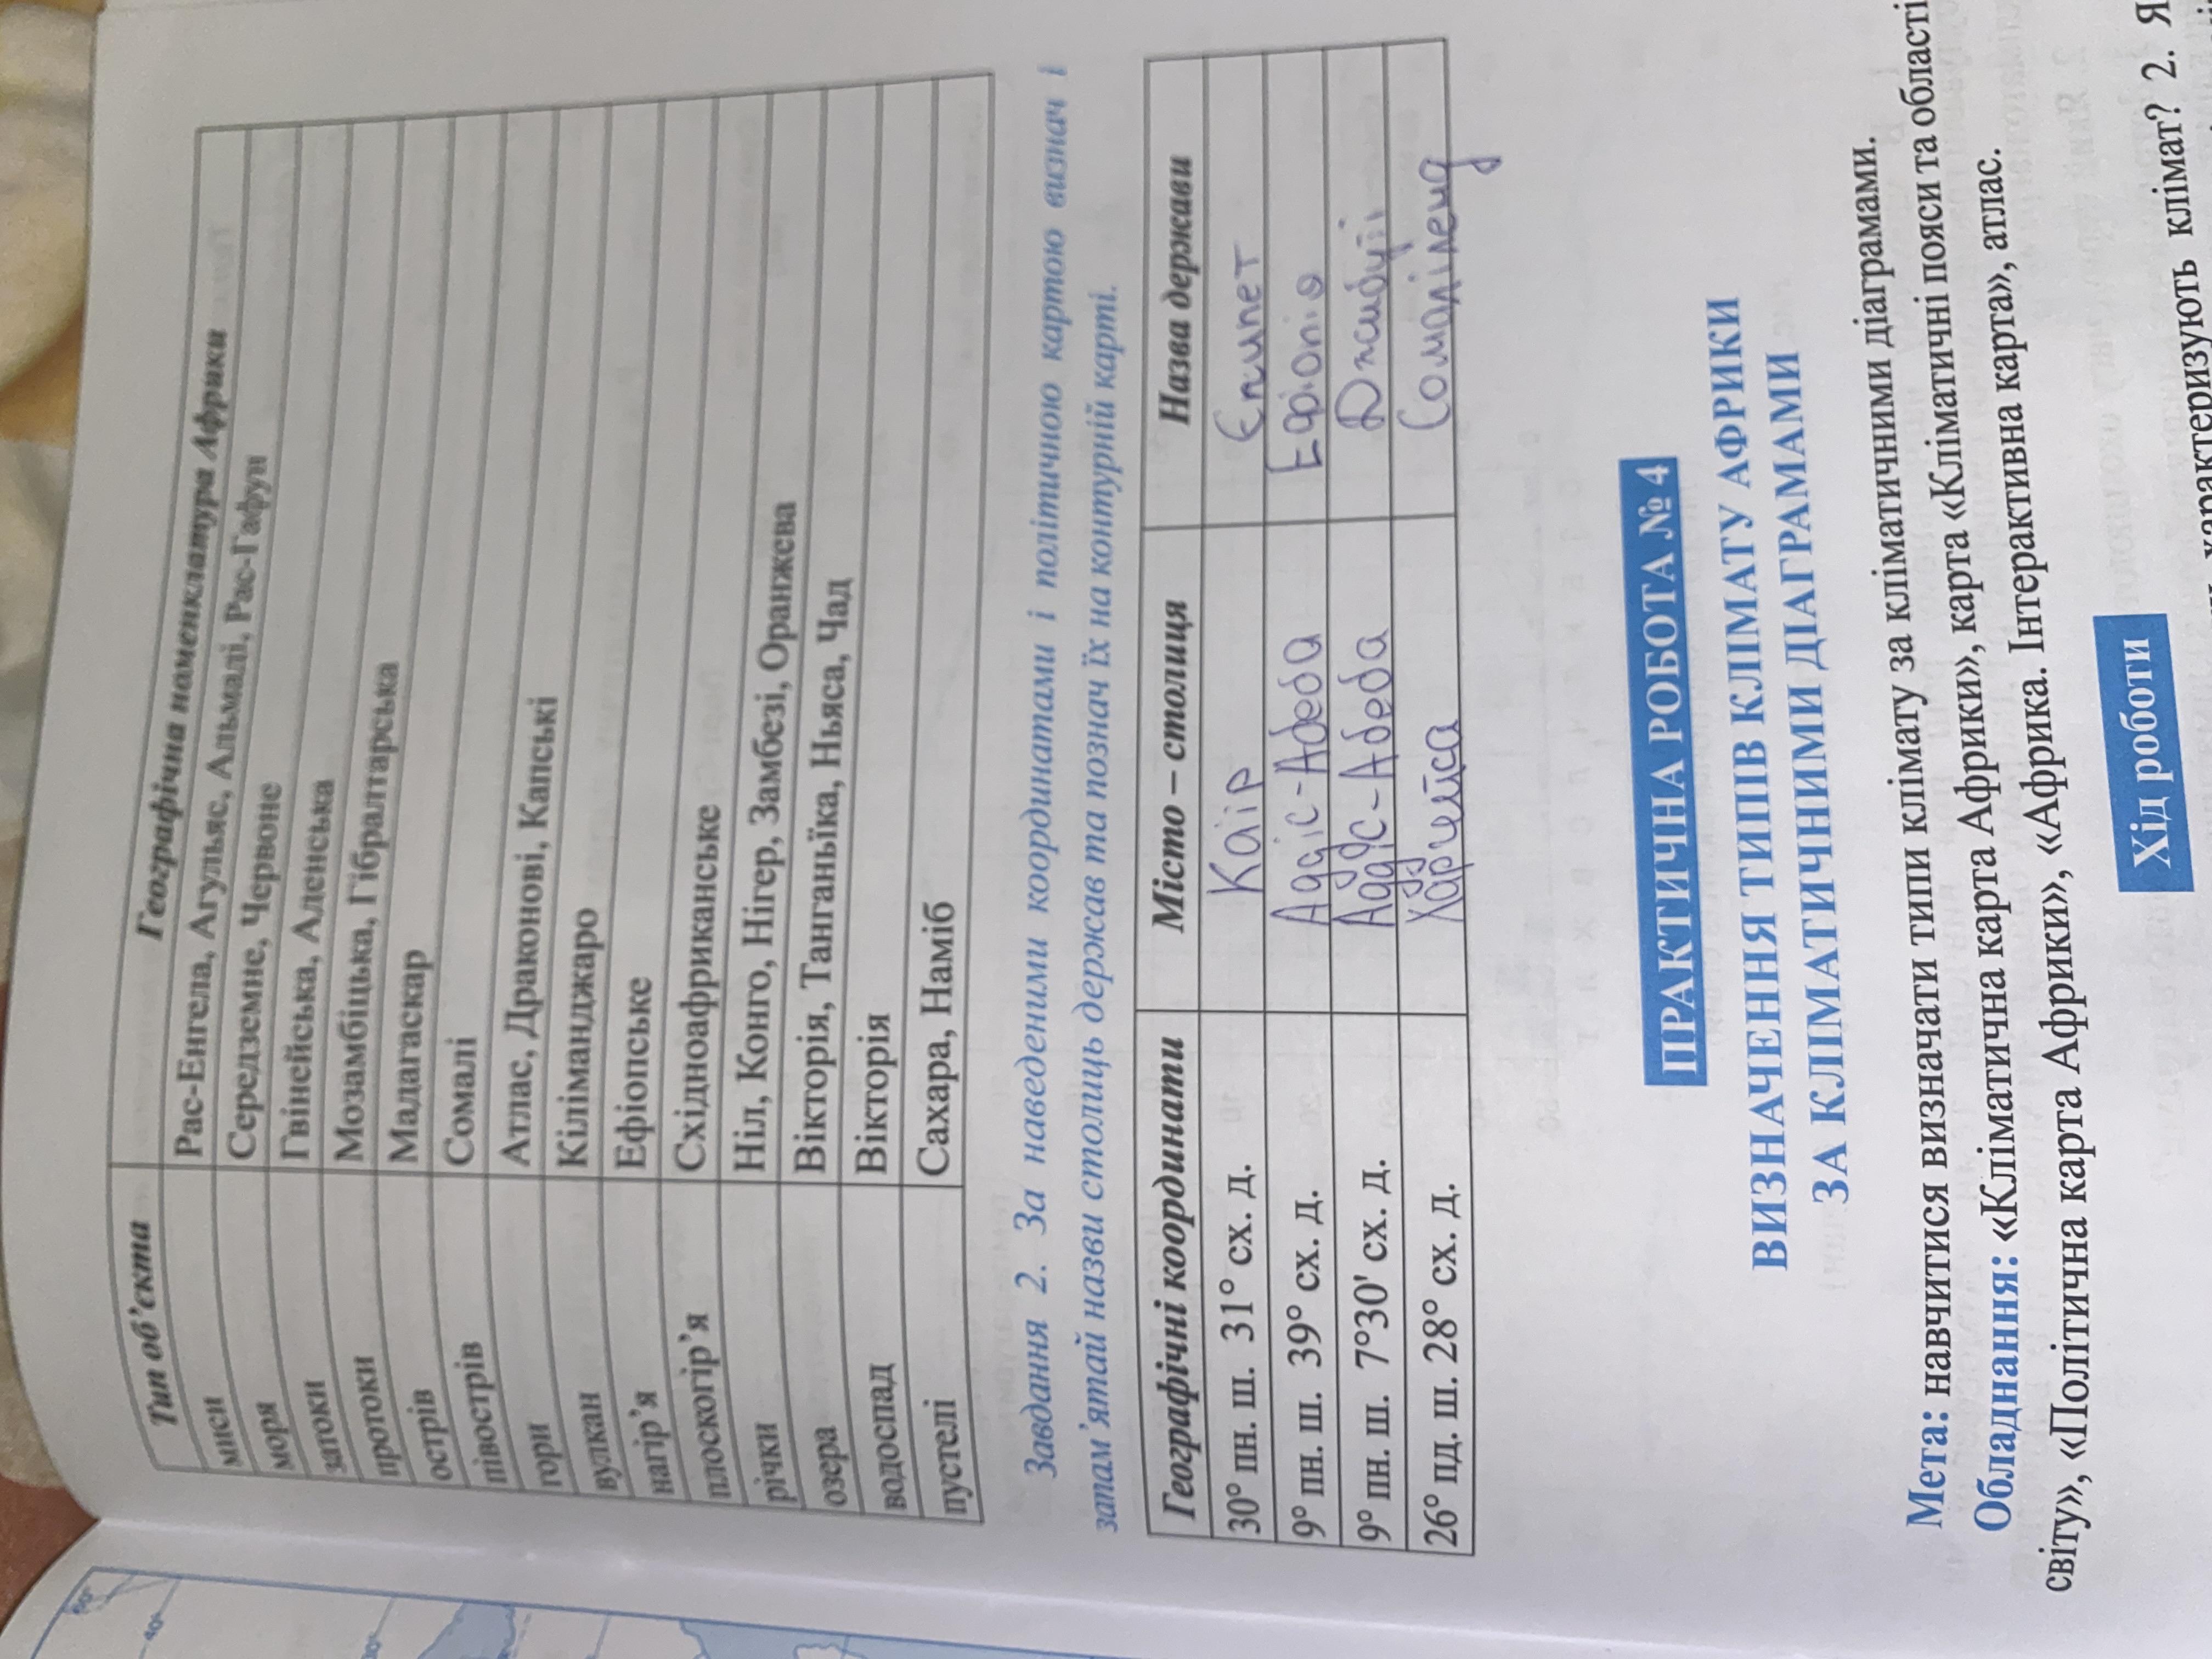 Тип об’єкта Географічна номенклатура Африки
миси Рас-Енгела, Агульяс, Альмаді, Рас-Гафун
моря Середземне, Червоне
затоки Гвінейська, Аденська
протоки Мозамбіцька, Гібралтарська
острів Мадагаскар
півострів Сомалі
гори Атлас, Драконові, Капські
вулкан Кіліманджаро
нагір’я Ефіопське
плоскогір’я Східноафриканське
річки Ніл, Конго, Нігер, Замбезі, Оранжева
озера Вікторія, Танганьїка, Ньяса, Чад
водоспад Вікторія
пустелі Сахара, Наміб
Завдання 2. За наведеними координатами і політичною картою визнач і
запам’ятай назви столиць держав та познач їх на контурній карті.
Географічні координати Місто – столиця Назва держави
30° пн. ш. 31° сх. д. Каїр Єгипет
9° пн. ш. 39° сх. д. Аддіс-Абеба Ефіопія
9° пн. ш. 7°30′ сх. д. Аддіс-Абеба Джибуті
26° пд. ш. 28° сх. д. Сомаліленд
ПРАКТИЧНА РОБОТА № 4
ВИЗНАЧЕННЯ ТИПІВ КЛІМАТУ АФРИКИ
ЗА КЛІМАТИЧНИМИ ДІАГРАМАМИ
Мета: навчитися визначати типи клімату за кліматичними діаграмами.
Обладнання: «Кліматична карта Африки», карта «Кліматичні пояси та області
світу», «Політична карта Африки», «Африка. Інтерактивна карта», атлас.
Хід роботи
характеризують клімат? 2. Я
60°
40°